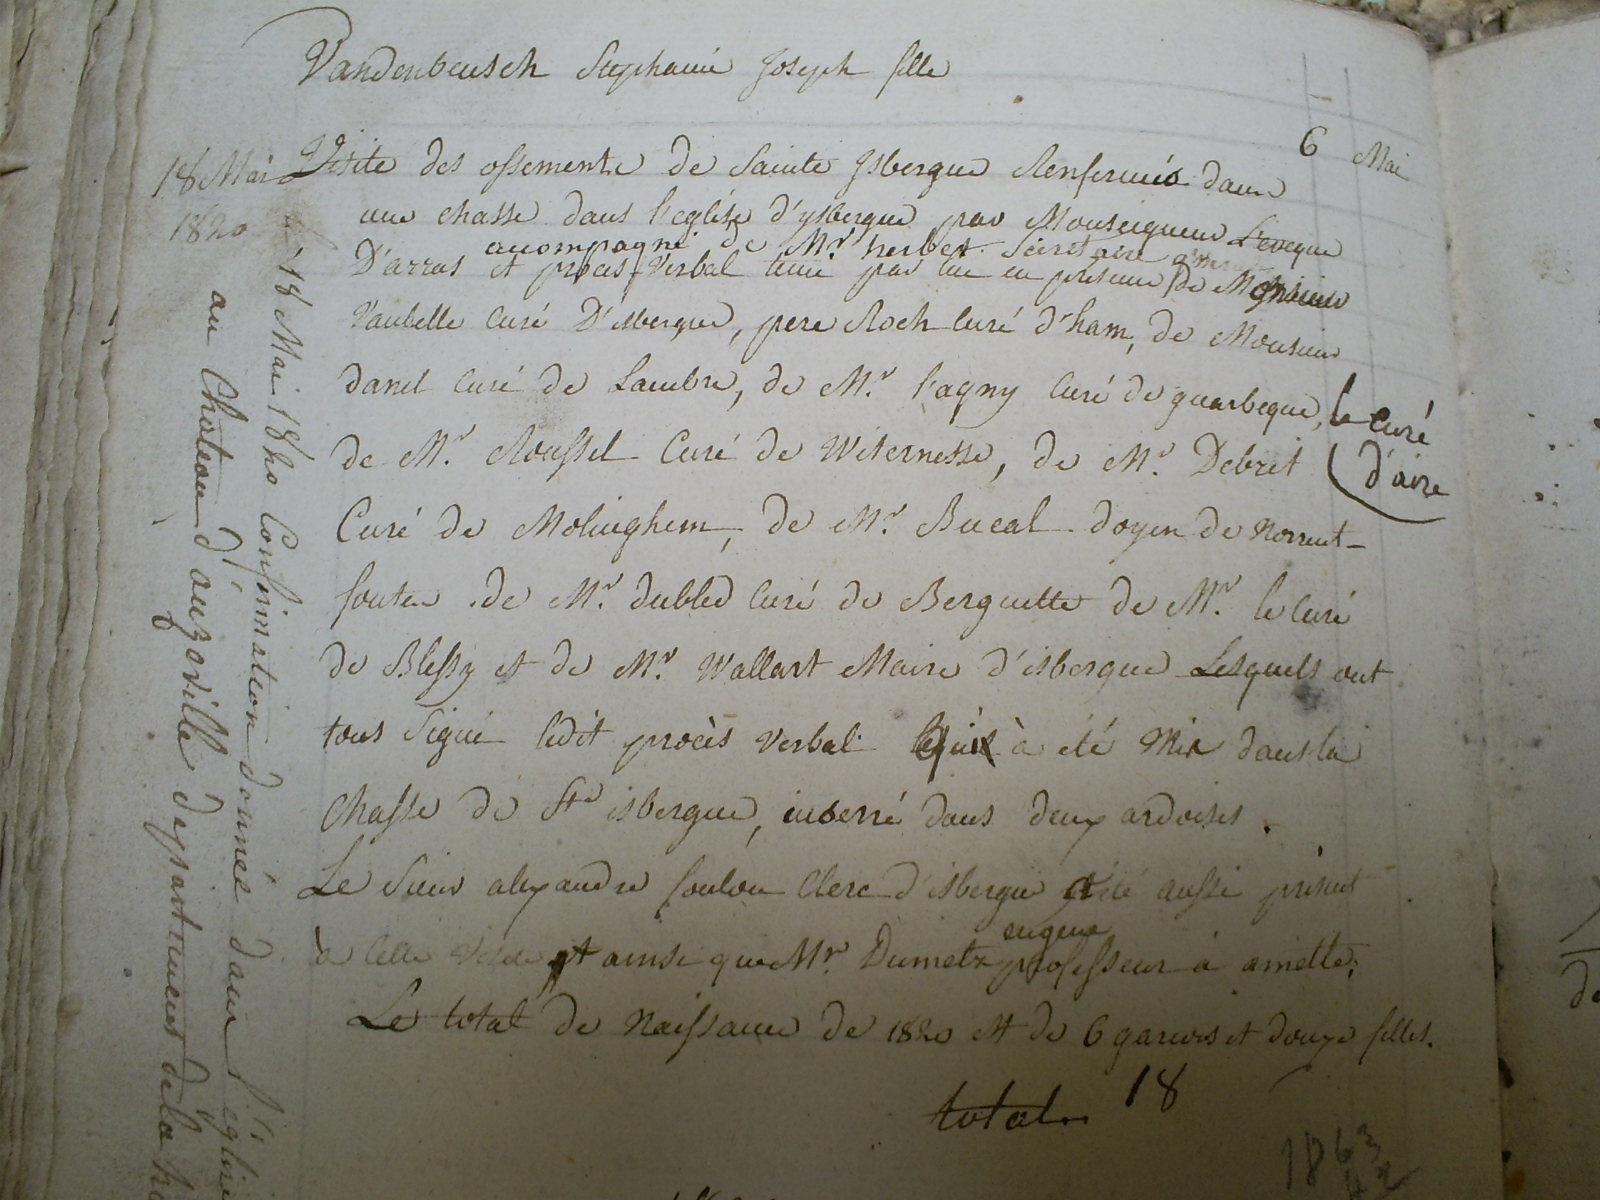 Vandenbeusch Stephanie Joseph fille
6 Mai
18 Mai
1820
Visite des ossements de Sainte Isbergue Renfermés dans
une chasse dans l'eglise d'ysbergue par Monseigneur L'eveque
accompagné de Mr. herbet Secretaire
D'arras et procès-Verbal tenu par lui en presence de Monsieur
Vaubelle Curé D'isbergue, pere Roch Curé d'ham, de Monsieur
danel Curé de Lambre, de Mr. Cagny Curé de guarbeque, le Curé
d'aire
de Mr. Roussel Curé de Witernesse, de Mr. Debret
Curé de Molinghem, de Mr. Bucal doyen de Norrent-
fontes de Mr. dubled Curé de Berguette de Mr. le Curé
de Blessy et de Mr. Wallart Maire d'isbergue Lesquels ont
tous Signé ledit procès verbal qui à été Mis dans la
Chasse de Ste isbergue, inserré dans deux ardoises.
Le Sieur alexandre Coulon Clerc d'isbergue a été aussi présent
eugene
à Cette Visite et ainsi que Mr. Dumetz professeur à amette.
Le total de Naissance de 1820 est de 6 garcons et douze filles.
total 18
1863
18 Mai 1820 Confirmation donnée dans l'église
au Château d'auzoville departement de la